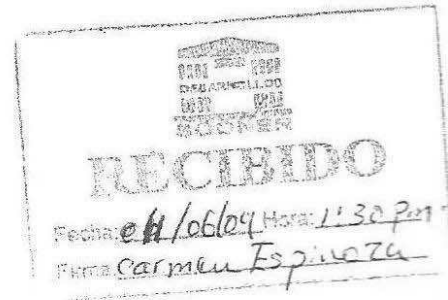 DESARROLLOS
RECIBIDO
Fecha: 04/06/04 Hora: 1:30 Pm
Firma Carmen Espinoza